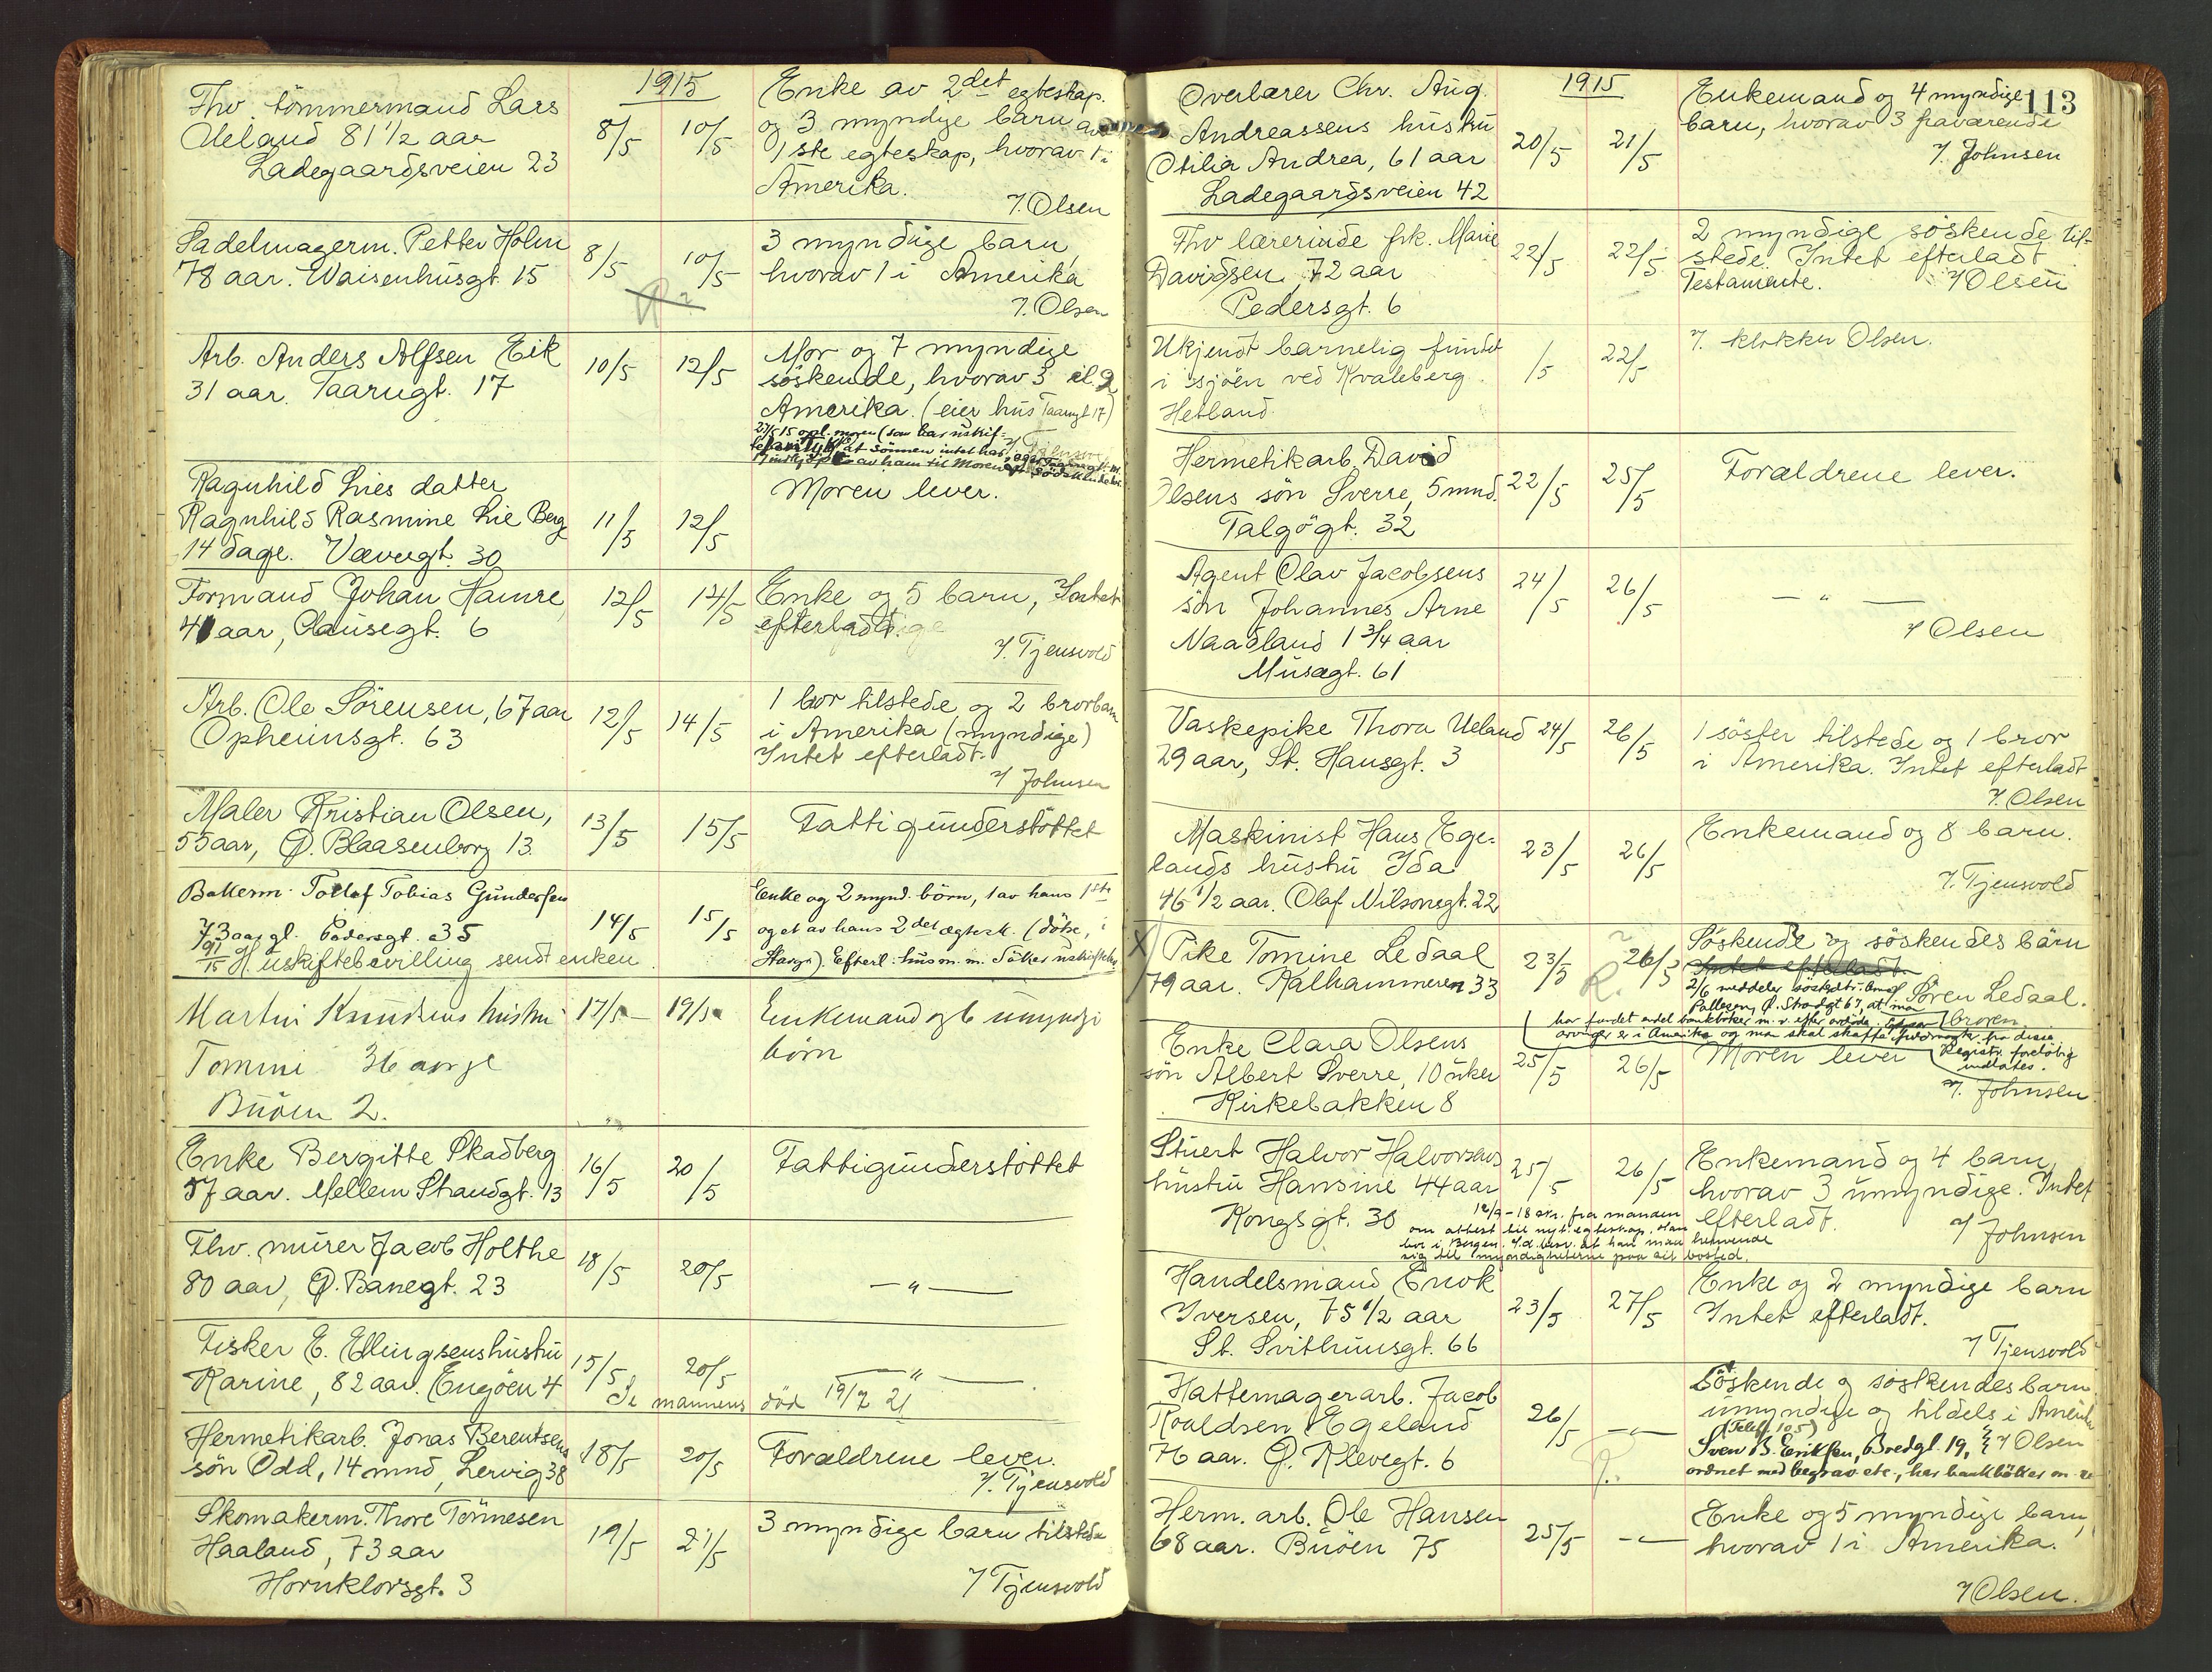 1915
Fhv. tömmermand Lars
Ueland 81 1/2 aar
Ladegaardsveien 23
8/5 10/5
Enke av 2det egteskap.
og 3 myndige barn av
1ste egteskap, hvorav 1 i
Amerika.
/. Olsen
Sadelmagerm. Petter Holm
78 aar. Waisenhusgt. 15
8/5 10/5
3 myndige barn,
hvorav 1 i Amerika
/. Olsen
Arb. Anders Alfsen Eik
31 aar. Taarugt. 17
10/5 12/5
Mor og 7 myndige
söskende, hvorav 3 el. 2
Amerika. (eier hus Taarugt 17)
Ragnhild Lies datter
Ragnhild Rasmine Lie Berg
14 dage. Vævergt. 30
11/5 12/5
Moren lever.
Formand Johan Hamre,
41 aar, Clausegt. 6
12/5 14/5
Enke og 5 barn, Intet
efterladt.
/. Tjensvold
Arb. Ole Sörensen, 67 aar
Opheimsgt. 63
12/5 14/5
1 bror tilstede og 2 brorbarn
i Amerika (myndige)
Intet efterladt.
/ Johnsen
Maler Kristian Olsen,
55 aar, Ø. Blaasenborg 13.
13/5 15/5
Fattigunderstöttet
Bakerm. Tollof Tobias Gundersen
73 aar gl. Pedersgt. 35
14/5 15/5
Enke og 2 mynd. börn, 1 av hans 1ste
og et av hans 2det ægtesk. (dötre, i
Stavgr). Efterl. hus m. m. Söker uskiftebev.
uskiftebevilling sendt enken.
Martin Knudsens hustru
Tomini 36 aar gl
Buöen 2.
17/5 19/5
Enkemand og 6 umyndige
börn
Enke Bergitte Skadberg
57 aar. Mellem Strandgt. 13
16/5 20/5
Fattigunderstöttet
Fhv. murer Jacob Holthe
80 aar, Ø. Banegt. 23
18/5 20/5
— " —
Fisker E. Ellingsens hustru
Karine, 82 aar. Engöen 4
15/5 20/5
— " —
Se mannens död 19/2 21
Hermetikarb. Jonas Berentsens
sön Odd, 14 mnd, Lervig 38
18/5 20/5
Forældrene lever.
/. Tjensvold
Skomakerm. Thore Tönnesen
Haaland, 73 aar
Hornklovsgt. 3
19/5 21/5
3 myndige barn tilstede
/ Tjensvold
1915
113
Overlærer Chr. Aug.
Andreassens hustru
Otilia Andrea, 61 aar
Ladegaardsveien 42
20/5 21/5
Enkemand og 4 myndige
barn, hvorav 3 fraværende
/. Johnsen
Fhv lærerinde frk. Marie
Davidsen, 72 aar
Pedersgt. 6
22/5 22/5
2 myndige söskende til-
stede. Intet efterladt
Testamente.
/ Olsen
Ukjendt barnelig fundet
i sjöen ved Kvaleberg
Hetland.
/5 22/5
/. klokker Olsen.
Hermetikarb. David
Olsens sön Sverre, 5 mnd.
Talgögt. 32
22/5 25/5
Forældrene lever.
Agent Olav Jacobsens
sön Johannes Arne
Naadland 1 3/4 aar
Musægt. 61
24/5 26/5
— " —
/ Olsen
Vaskepike Thora Ueland
29 aar, St. Hansgt. 3
24/5 26/5
1 söster tilstede og 1 bror
i Amerika. Intet efterladt
/. Olsen
Maskinist Hans Ege-
lands hustru Ida
46 1/2 aar. Olaf Nilsonsgt. 22
23/5 26/5
Enkemand og 8 barn.
/. Tjensvold
X Pike Tomine Ledaal
79 aar. Kalhammeren 33
23/5 R. 26/5
Söskende og söskendes barn
Intet efterladt.
Sören Ledaal.
broren
har fundet endel bankböker m. v. efter avdöde.
arvinger er i Amerika og man skal skaffe fra disse
Registr. foreløbig
undlates.
Enke Clara Olsens
sön Albert Sverre, 10 uker
Kirkebakken 8
25/5 26/5
Moren lever
/. Johnsen
Stuert Halvor Halvorsens
hustru Hansine 44 aar
Kongsgt. 30
25/5 26/5
Enkemand og 4 barn,
hvorav 3 umyndige. Intet
efterladt.
/ Johnsen
fra manden
om attest til nyt egteskap. Han
bor i Bergen. at han maa henvende
sig til myndigheterne paa sit bosted.
Handelsmand Enok
Iversen, 75 1/2 aar
St. Svithunsgt. 66
23/5 27/5
Enke og 2 myndige barn
Intet efterladt.
/ Tjensvold
Hattemagerarb. Jacob
Roaldsen Egeland
76 aar. Ø. Klevegt. 6
26/5 — " —
R.
Söskende og söskendes barn
umyndige og tildels i Amerika
(Telef. 105)
Sven B. Eriksen, Bredgt. 19, / Olsen
ordnet med begrav. etc., har bankböker m. v.
Herm. arb. Ole Hansen
68 aar. Buöen 75
25/5 — " —
Enke og 5 myndige barn,
hvorav 1 i Amerika.
/ Olsen.